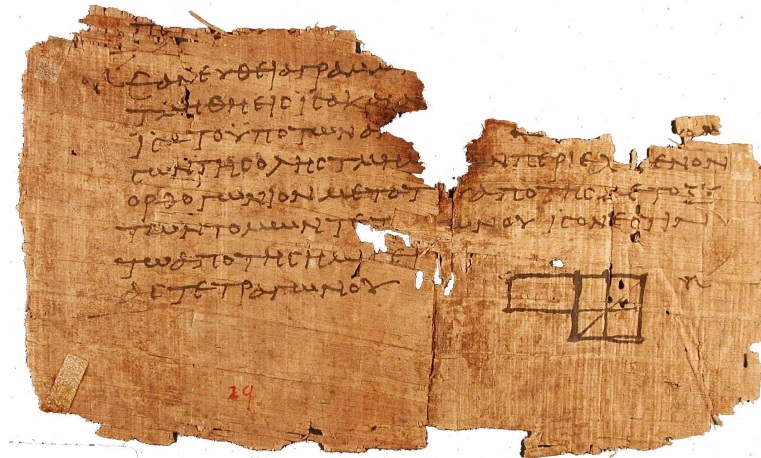 ΕΑΝΕΥΘΕΙΑΓΡΑΜ
ΤΜΗΘΗΕΙϹΙϹΑΚΑΙΑ
ΙϹΑΤΟΥΠΟΤΩΝΑ
ϹΩΝΤΗϹΟΛΗϹΤΜΗΜ ΩΝΠΕΡΙΕΧ ΜΕΝΟΝ
ΟΡΘΟΓΩΝΙΟΝΜΕΤΟΤ ΑΠΟΤΗϹΜΕΤΟΞΥ
ΤΩΝΤΟΜΩΝΤΕΤ ΩΝΟΥΙϹΟΝΕϹΤΙΝ
ΤΩΑΠΟΤΗϹΗΜΙϹΕΙ
ΔΕΤΕΤΡΑΓΩΝΟΥ
29